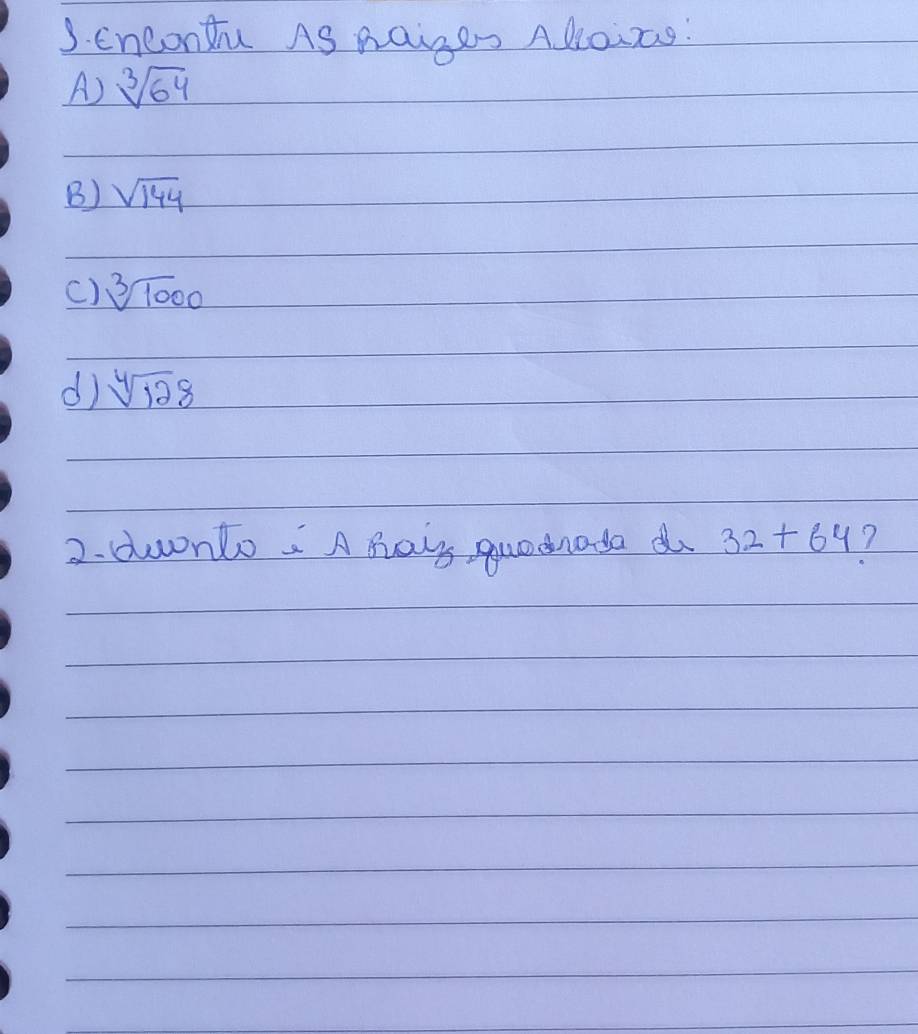 1. Encontre As Raizes Abaixo:
A) ∛64
B) √144
C) ∛1000
d) ∜128
2- Quanto é A Raiz quadrada de 32 + 64?